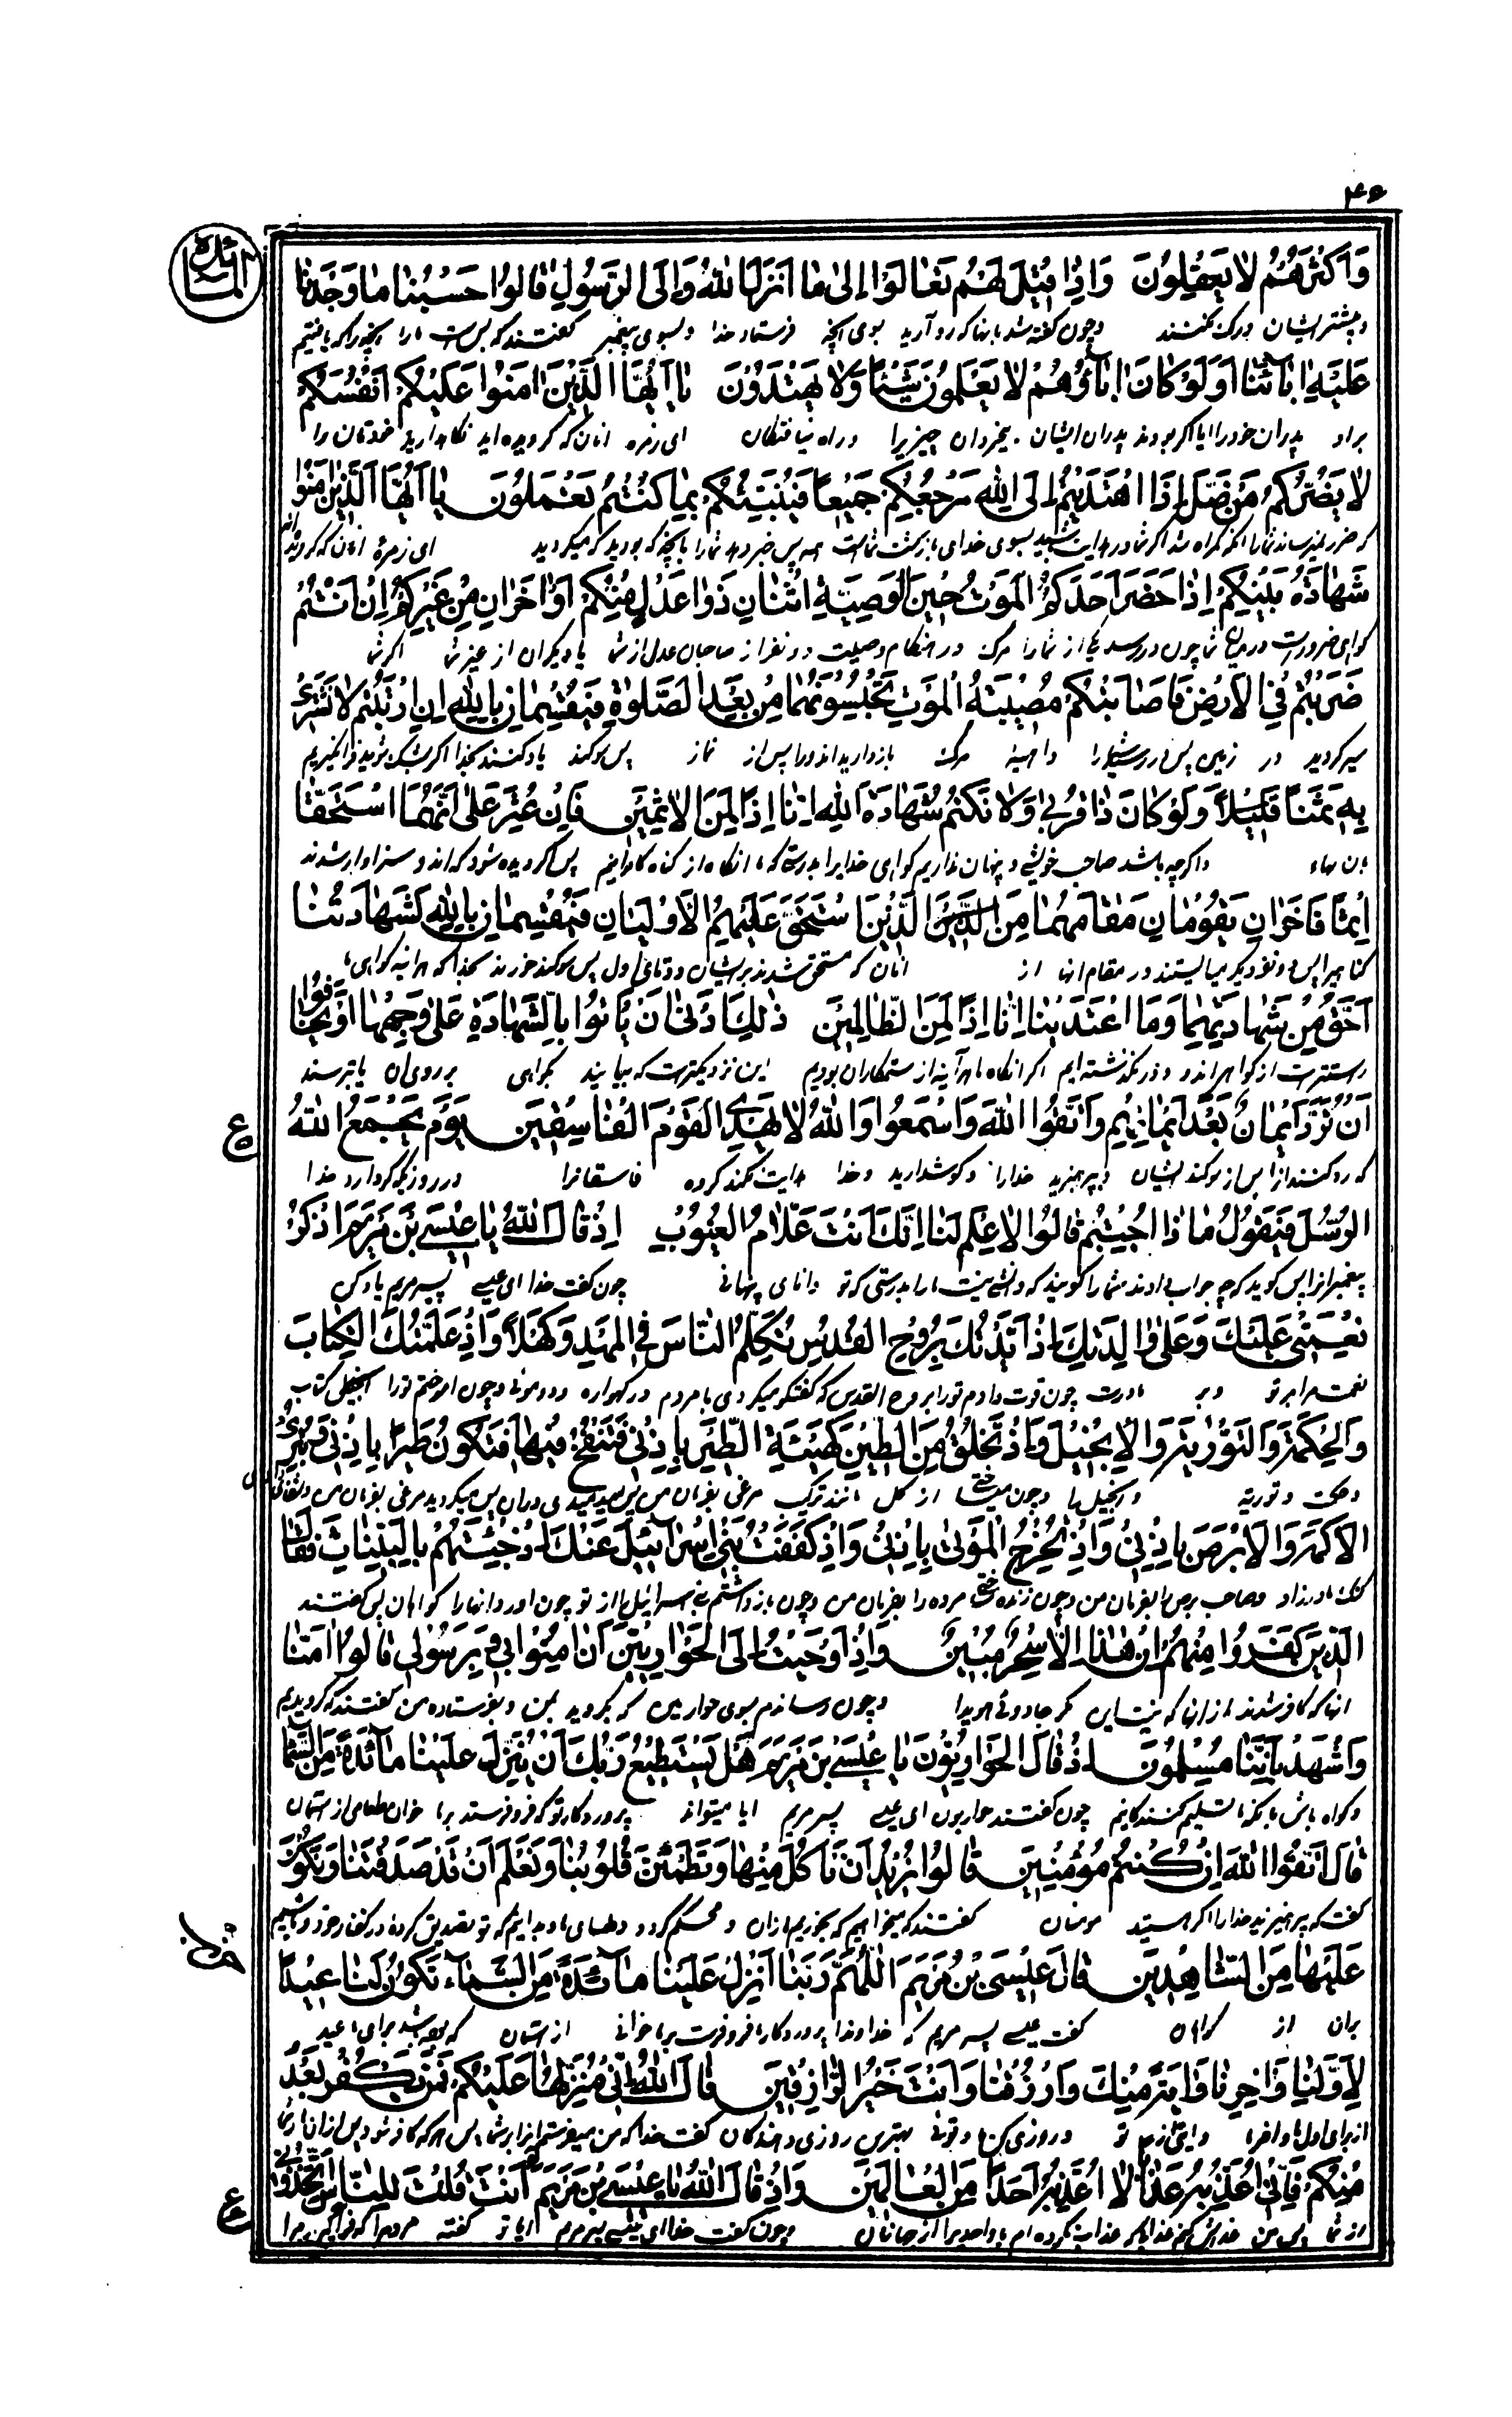 المائدة
وَأَكْثَرُهُمْ لا يَعْقِلُونَ وَإِذا قِيلَ لَهُمْ تَعالَوْا إِلىٰ ما أَنْزَلَ اللهُ وَإِلَى الرَّسُولِ قالُوا حَسْبُنا ما وَجَدْنا
و بیشتر ایشان درک نکنند و چون گفته شد بانها که رو آرید بسوی آنچه فرستاد خدا و بسوی پیغمبر گفتند که بس است ما را آنچه را که یافتیم
عَلَيْهِ اٰبآئَنا أَوَلَوْ كانَ اٰبآؤُهُمْ لا يَعْلَمُونَ شَيْئًا وَلا يَهْتَدُونَ يا أَيُّهَا الَّذِينَ اٰمَنُوا عَلَيْكُمْ أَنْفُسَكُمْ
پدران خود را ایا اگر بودند پدران ایشان چیزیرا و راه نیافتگان ای زمره انان که گرویده اید نگاهدارید خودتان را
لا يَضُرُّكُمْ مَنْ ضَلَّ إِذَا اهْتَدَيْتُمْ إِلَى اللهِ مَرْجِعُكُمْ جَمِيعًا فَيُنَبِّئُكُمْ بِما كُنْتُمْ تَعْمَلُونَ يا أَيُّهَا الَّذِينَ اٰمَنُوا
که ضرر نمیرساند شما را انکه گمراه شد اگر شما در هدایت باشید بسوی خدای بازگشت شماست همه پس خبر دهد شما را بانچه که بودید که میکردید ای زمره انان که گرویده اند
شَهادَةُ بَيْنِكُمْ إِذا حَضَرَ أَحَدَكُمُ الْمَوْتُ حِينَ الْوَصِيَّةِ اثْنانِ ذَوا عَدْلٍ مِنْكُمْ أَوْ اٰخَرانِ مِنْ غَيْرِكُمْ إِنْ أَنْتُمْ
گواهی ضرور است در میان شما چون در رسد یکی از شما را مرگ در هنگام وصیت دو نفر از صاحبان عدل از شما یا دیگران از غیر شما اگر شما
ضَرَبْتُمْ فِي الْأَرْضِ فَأَصابَتْكُمْ مُصِيبَةُ الْمَوْتِ تَحْبِسُونَهُما مِنْ بَعْدِ الصَّلٰوةِ فَيُقْسِمانِ بِاللهِ إِنِ ارْتَبْتُمْ لا نَشْتَرِي
سیر کردید در زمین پس در رسد شما را داهیهٔ مرگ بازدارید اندو را پس از نماز پس سوگند یاد کنند بخدا اگر بشک شوید فرا نگیریم
بِهِ ثَمَنًا قَلِيلًا وَلَوْ كانَ ذا قُرْبىٰ وَلا نَكْتُمُ شَهادَةَ اللهِ إِنّا إِذًا لَمِنَ الْاٰثِمِينَ فَإِنْ عُثِرَ عَلىٰ أَنَّهُمَا اسْتَحَقّا
بان بهاء و اگرچه باشد صاحب خویشی و پنهان نداریم گواهی خدایرا بدرستیکه ما انگاه از گناه کارانیم پس اگر دیده شود که اندو سزاوار شدند
إِثْمًا فَاٰخَرانِ يَقُومانِ مَقامَهُما مِنَ الَّذِينَ اسْتَحَقَّ عَلَيْهِمُ الْأَوْلَيانِ فَيُقْسِمانِ بِاللهِ لَشَهادَتُنا
گناهیرا پس دو نفر دیگر میایستند در مقام انها از انان که مستحق شدند بر ایشان دو تای اول پس سوگند خورند بخدا که هراینه گواهی ما
أَحَقُّ مِنْ شَهادَتِهِما وَمَا اعْتَدَيْنا إِنّا إِذًا لَمِنَ الظّالِمِينَ ذٰلِكَ أَدْنىٰ أَنْ يَأْتُوا بِالشَّهادَةِ عَلىٰ وَجْهِها أَوْ يَخافُوا
راستتر است از گواهی اندو و در نگذشته ایم اگر انگاه ما هرآینه از ستمکاران بودیم این نزدیکتر است که بیایند بگواهی بر روی ان یا بترسند
أَنْ تُرَدَّ أَيْمانٌ بَعْدَ أَيْمانِهِمْ وَاتَّقُوا اللهَ وَاسْمَعُوا وَاللهُ لا يَهْدِي الْقَوْمَ الْفاسِقِينَ يَوْمَ يَجْمَعُ اللهُ
ع
که رد کنند از پس از سوگند ایشان و بپرهیزید خدا را و گوش دارید و خدا هدایت نکند گروه فاسقانرا در روزیکه گرد آرد خدا
الرُّسُلَ فَيَقُولُ ماذا أُجِبْتُمْ قالُوا لا عِلْمَ لَنا إِنَّكَ أَنْتَ عَلّامُ الْغُيُوبِ إِذْ قالَ اللهُ يا عِيسَى بْنَ مَرْيَمَ اذْكُرْ
پیغمبرانرا پس گوید که چه جواب دادند شما را گویند که دانشی نیست ما را بدرستی که تو دانای پنهانی چون گفت خدا ای عیسی پسر مریم یاد کن
نِعْمَتِي عَلَيْكَ وَعَلىٰ والِدَتِكَ إِذْ أَيَّدْتُكَ بِرُوحِ الْقُدُسِ تُكَلِّمُ النّاسَ فِي الْمَهْدِ وَكَهْلًا وَإِذْ عَلَّمْتُكَ الْكِتابَ
نعمت مرا بر تو و بر مادرت چون قوت دادم تو را بروح القدس که گفتگو میکردی با مردم در گهواره و دو موئی و چون اموختم تو را کتاب
وَالْحِكْمَةَ وَالتَّوْرٰيةَ وَالْإِنْجِيلَ وَإِذْ تَخْلُقُ مِنَ الطِّينِ كَهَيْئَةِ الطَّيْرِ بِإِذْنِي فَتَنْفُخُ فِيها فَتَكُونُ طَيْرًا بِإِذْنِي وَتُبْرِئُ
و حکمت و توریة و انجیل را و چون میساختی از گل مانند ترکیب مرغی بفرمان من پس میدمیدی دران پس میگردید مرغی بفرمان من
الْأَكْمَهَ وَالْأَبْرَصَ بِإِذْنِي وَإِذْ تُخْرِجُ الْمَوْتىٰ بِإِذْنِي وَإِذْ كَفَفْتُ بَنِي إِسْرآئِيلَ عَنْكَ إِذْ جِئْتَهُمْ بِالْبَيِّناتِ فَقالَ
گنگ مادرزاد و صاحب برص را بفرمان من و چون زنده ساختی مرده را بفرمان من و چون بازداشتم بنی اسرائیل را از تو چون اوردی انها را گواهان پس گفتند
الَّذِينَ كَفَرُوا مِنْهُمْ إِنْ هٰذا إِلّا سِحْرٌ مُبِينٌ وَإِذْ أَوْحَيْتُ إِلَى الْحَوارِيِّينَ أَنْ اٰمِنُوا بِي وَبِرَسُولِي قالُوا اٰمَنّا
انها که کافر شدند از انها که نیست این مگر جادوئی هویدا و چون رساندم بسوی حواریین که بگروید بمن و بفرستاده من گفتند که گرویدیم
وَاشْهَدْ بِأَنَّنا مُسْلِمُونَ إِذْ قالَ الْحَوارِيُّونَ يا عِيسَى بْنَ مَرْيَمَ هَلْ يَسْتَطِيعُ رَبُّكَ أَنْ يُنَزِّلَ عَلَيْنا مآئِدَةً مِنَ السَّمآءِ
و گواه باش بانکه ما تسلیم کنندگانیم چون گفتند حواریون ای عیسی پسر مریم ایا میتواند پروردگار تو که فرو فرستد بر ما خوان طعامی از اسمان
قالَ اتَّقُوا اللهَ إِنْ كُنْتُمْ مُؤْمِنِينَ قالُوا نُرِيدُ أَنْ نَأْكُلَ مِنْها وَتَطْمَئِنَّ قُلُوبُنا وَنَعْلَمَ أَنْ قَدْ صَدَقْتَنا وَنَكُونَ
گفت که بپرهیزید خدا را اگر هستید مومنان گفتند که میخواهیم که بخوریم از ان و محکم گردد دلهای ما و بدانیم که تو تصدیق کردهٔ در گفتار خود و باشیم
عَلَيْها مِنَ الشّاهِدِينَ قالَ عِيسَى بْنُ مَرْيَمَ اللّٰهُمَّ رَبَّنا أَنْزِلْ عَلَيْنا مآئِدَةً مِنَ السَّمآءِ تَكُونُ لَنا عِيدًا
بران از گواهان گفت عیسی پسر مریم که خداوندا پروردگارا فرو فرست بر ما خوانی از اسمان که بوده باشد برای ما عید
لِأَوَّلِنا وَاٰخِرِنا وَاٰيَةً مِنْكَ وَارْزُقْنا وَأَنْتَ خَيْرُ الرّازِقِينَ قالَ اللهُ إِنِّي مُنَزِّلُها عَلَيْكُمْ فَمَنْ يَكْفُرْ بَعْدُ
از برای اول ما و اخر ما و ایتی از تو و روزی کن ما را و توئی بهترین روزی دهندگان گفت خدا که من میفرستم انرا بر شما پس هر که کافر شود پس از ان
مِنْكُمْ فَإِنِّي أُعَذِّبُهُ عَذابًا لا أُعَذِّبُهُ أَحَدًا مِنَ الْعالَمِينَ وَإِذْ قالَ اللهُ يا عِيسَى بْنَ مَرْيَمَ أَأَنْتَ قُلْتَ لِلنّاسِ اتَّخِذُونِي
ع
از شما پس من عذابش کنم عذابی که عذاب نکرده ام با واحدیرا از جهانیان و چون گفت خدا ای عیسی پسر مریم ایا تو گفته مردم را که فرا گیرید مرا